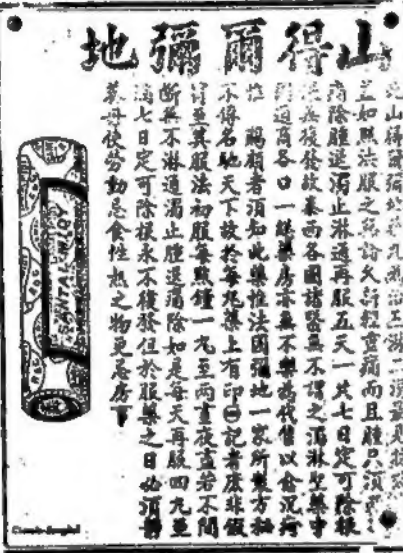 山得爾彌地
如照法服之無論久新輕重痛而且腫只須
痛除腫退濁止淋通再服五天一共七日定可除根
無復發故泰西各國諸醫無不謂之濁淋聖藥中
國通商各口一經藥房亦無不樂為代售以
惟 賜顧者須知此藥惟法國彌地一家所製方秘
不傳名馳天下故於每丸藥上有印記者庶非假
冒至其服法初服每點鐘一丸至兩晝夜盡若不間
斷無不淋通濁止腫退痛除如是每天再服四丸至
滿七日定可除根永不復發但於服藥之日必須靜
養毋使勞動忌食性熱之物更忌房
SANTAL MIDY